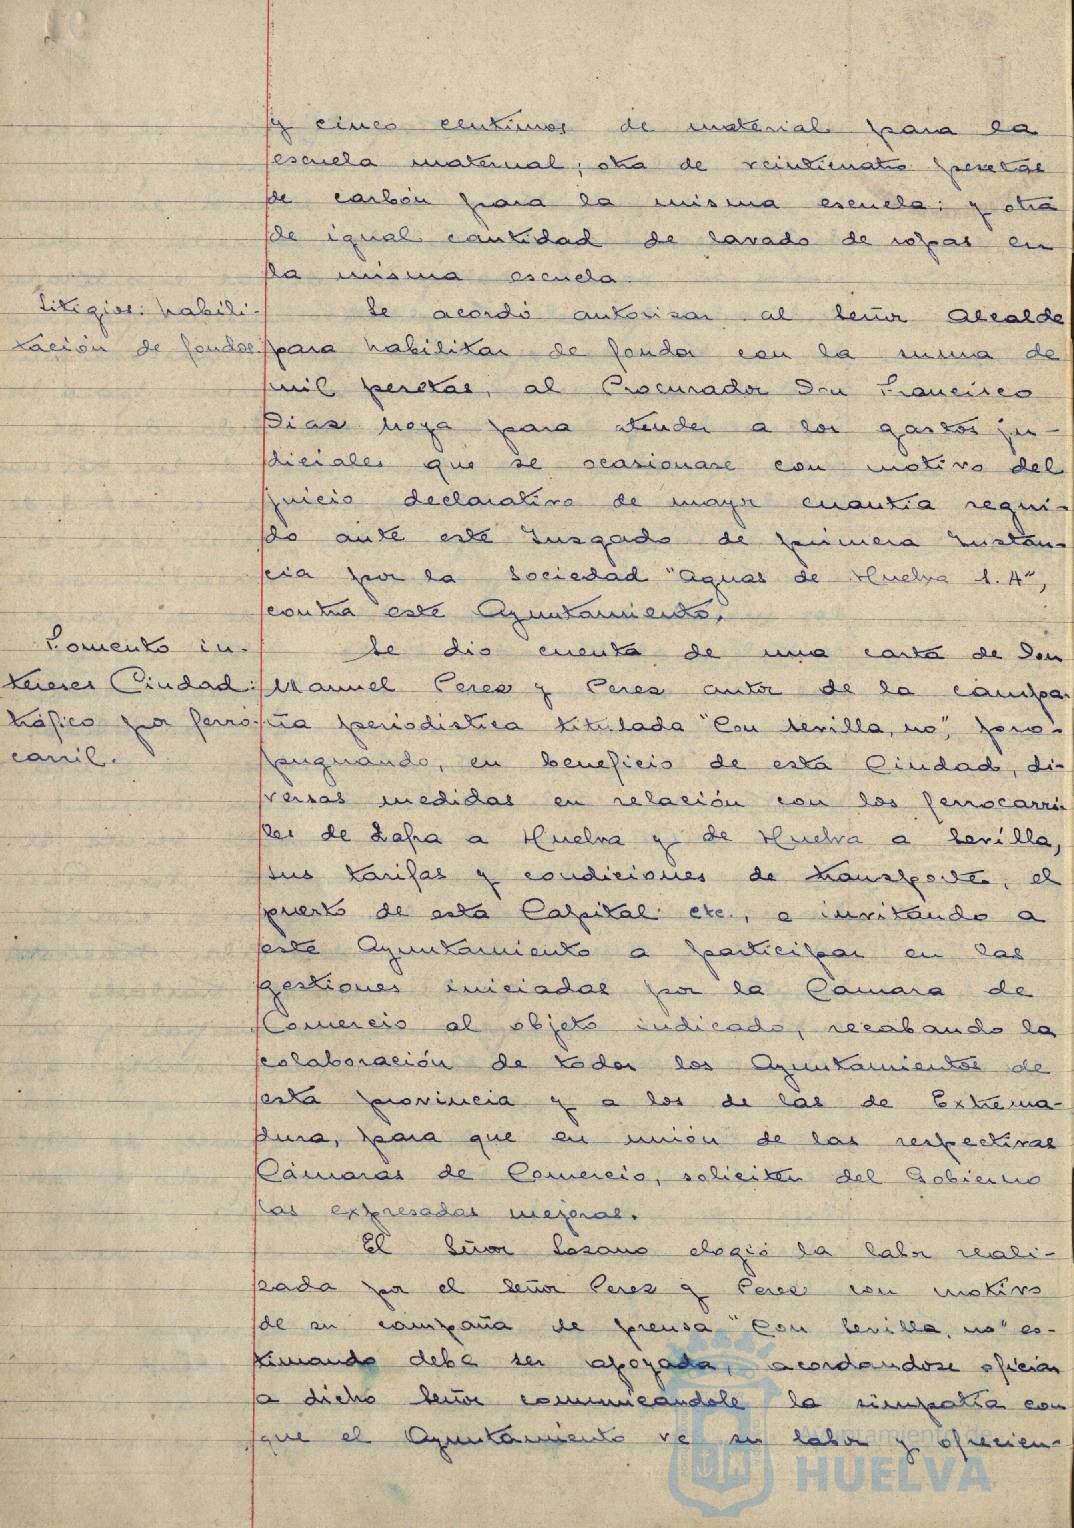 y cinco centimos de material para la
escuela maternal; otra de veinticuatro pesetas
de carbón para la misma escuela; y otra
de igual cantidad de lavado de ropas en
la misma escuela.
Litigios: habili-
tación de fondos
Se acordó autorizar al Señor Alcalde
para habilitar de fondos con la suma de
mil pesetas, al Procurador Don Francisco
Diaz Moya para atender a los gastos ju-
diciales que se ocasionase con motivo del
juicio declarativo de mayor cuantía segui-
do ante este Juzgado de primera Instan-
cia por la Sociedad "Aguas de Huelva S. A",
contra este Ayuntamiento.
Fomento in-
tereses Ciudad:
tráfico por ferro-
carril.
Se dio cuenta de una carta de Don
Manuel Perez y Perez autor de la campa-
ña periodística titulada "Con Sevilla, no", pro-
pugnando, en beneficio de esta Ciudad, di-
versas medidas en relación con los ferrocarri-
les de Zafra a Huelva y de Huelva a Sevilla,
sus tarifas y condiciones de transporte, el
puerto de esta Capital etc., e invitando a
este Ayuntamiento a participar en las
gestiones iniciadas por la Cámara de
Comercio al objeto indicado, recabando la
colaboración de todos los Ayuntamientos de
esta provincia y a los de las de Extrema-
dura, para que en unión de las respectivas
Cámaras de Comercio, soliciten del Gobierno
las expresadas mejoras.
El Señor Lozano elogió la labor reali-
zada por el Señor Perez y Perez con motivo
de su campaña de prensa "Con Sevilla, no" es-
timando debe ser apoyada, acordandose oficiar
a dicho Señor comunicándole la simpatía con
que el Ayuntamiento ve su labor y ofrecien-
Ayuntamiento de
HUELVA